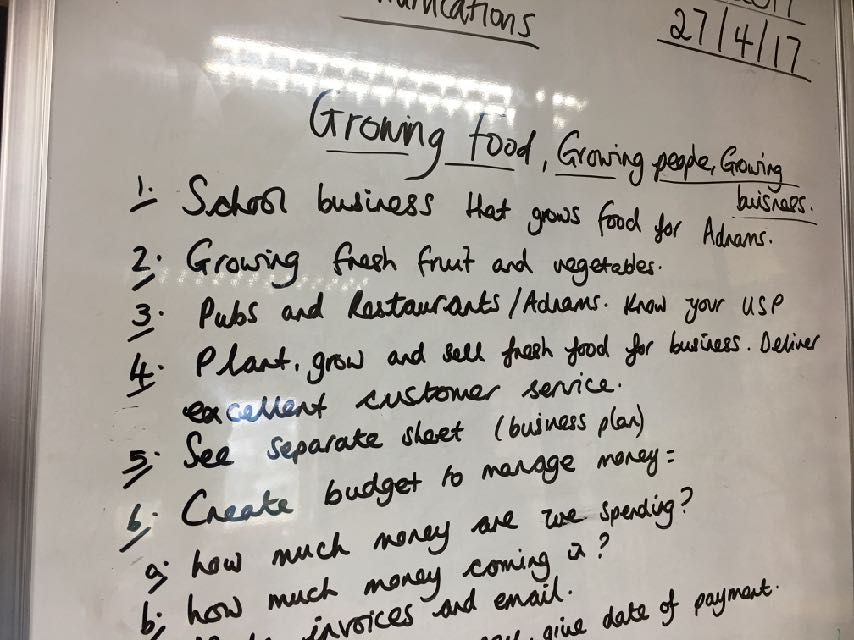 27/4/17
Growing food, Growing people, Growing
buisness.
1. School business that grows food for Adnams.
2. Growing fresh fruit and vegetables.
3. Pubs and Restaurants/Adnams. Know your USP
4. Plant, grow and sell fresh food for business. Deliver
excellent customer service.
5. See separate sheet (business plan)
6. Create budget to manage money:
a. how much money are we spending?
b. how much money coming in?
invoices and email.
give date of payment.